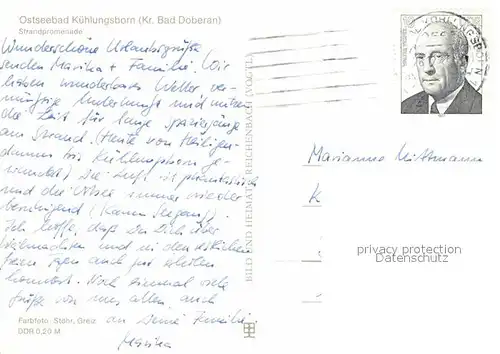 Ostseebad Kühlungsborn (Kr. Bad Doberan)
Strandpromenade
Wunderschöne Urlaubsgrüße
senden Marina + Familie. Wir
haben wunderbares Wetter, ver-
nünftige Unterkunft und nutzen
die Zeit für lange Spaziergänge
am Strand (Heute von Heiligen-
damm bis Kühlungsborn ge-
wandert) Die Luft ist phantastisch
und die Ostsee immer wieder
beruhigend (Kaum Seegang).
Ich hoffe, daß Du Dich über
Weihnachten und in den restlichen
freien Tagen auch gut erholen
konntest. Noch einmal viele
Grüße von uns allen, auch
an Deine Familie.
Marina
Farbfoto: Stöhr, Greiz
DDR 0,20 M
BILD UND HEIMAT REICHENBACH (VOGTL)
KÜHLUNGSBORN
Marianne Mittmann
K
privacy protection
Datenschutz